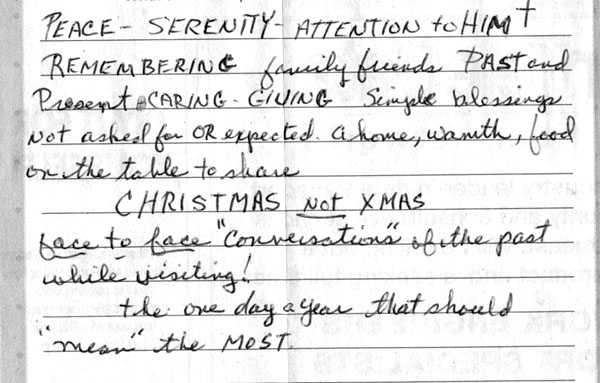 PEACE - SERENITY - ATTENTION to HIM †
REMEMBERING family friends PAST and
Present CARING - GIVING Simple blessings
Not asked for OR expected. a home, warmth, food
on the table to share
CHRISTMAS NOT XMAS
face to face "Conversations" of the past
while visiting!
the one day a year that should
"mean" the MOST.